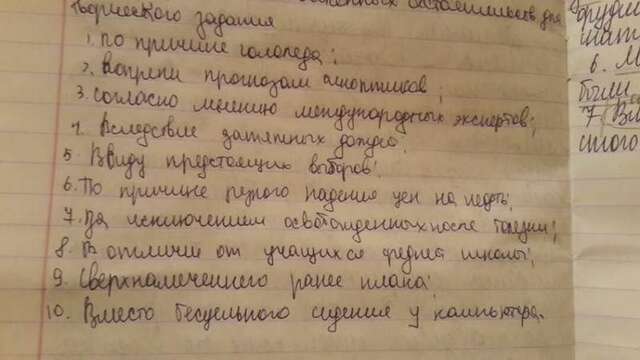 Творческого задания
1. По причине гололеда;
2. Вопреки прогнозам синоптиков;
3. Согласно мнению международных экспертов;
4. Вследствие затяжных дождей;
5. Ввиду предстоящих выборов;
6. По причине резкого падения цен на нефть;
7. За исключением освобожденных после болезни;
8. В отличии от учащихся средней школы;
9. Сверх намеченного ранее плана;
10. Вместо бесцельного сидения у компьютера.
6. М
были
7 Вм